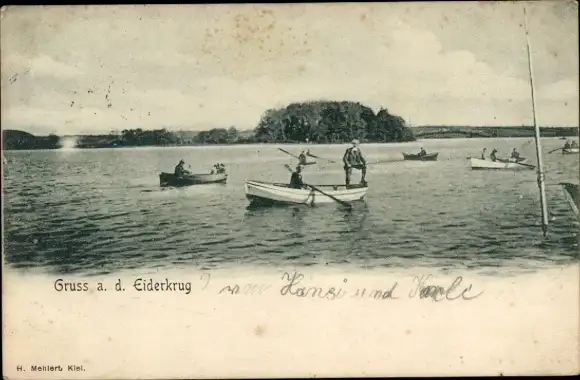 Gruss a. d. Eiderkrug von Hansi und Karli
H. Mehlert, Kiel.